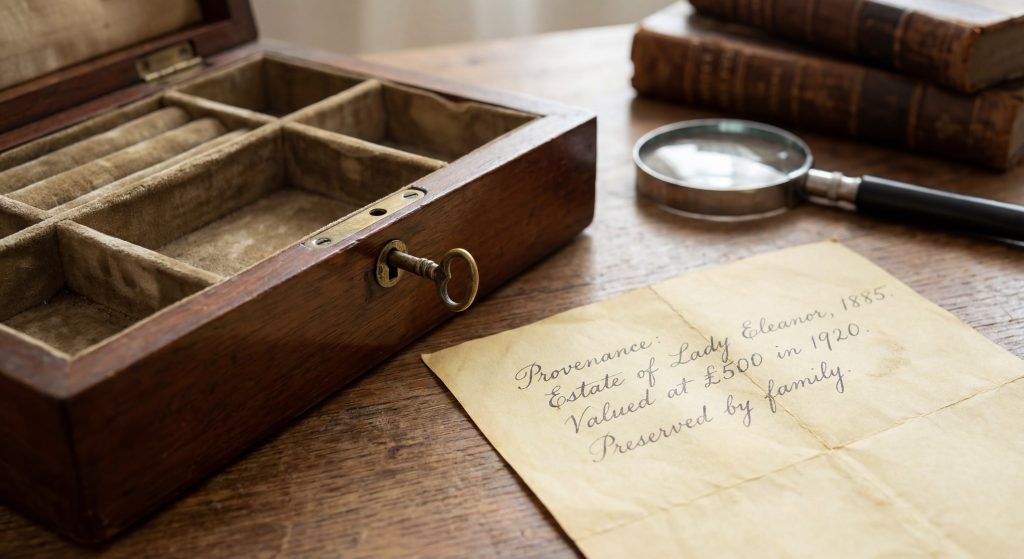 Provenance:
Estate of Lady Eleanor, 1885.
Valued at £500 in 1920.
Preserved by family.